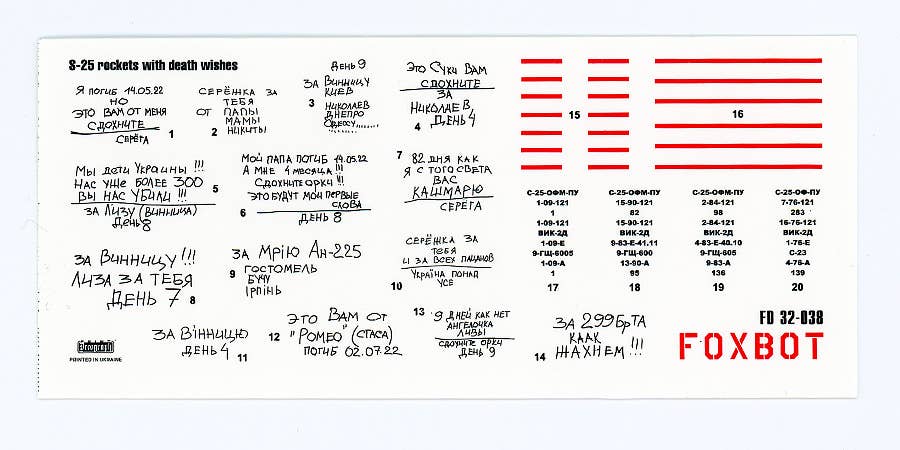 S-25 rockets with death wishes
Я погиб 14.05.22
НО
ЭТО ВАМ ОТ МЕНЯ
СДОХНИТЕ
СЕРЁГА
1
СЕРЁЖКА ЗА
ТЕБЯ
ОТ ПАПЫ
МАМЫ
НИКИТЫ
2
ДЕНЬ 9
ЗА ВИННИЦУ
КИЕВ
НИКОЛАЕВ
ДНЕПРО
ОДЕССУ........
3
ЭТО СУКИ ВАМ
СДОХНИТЕ
ЗА
НИКОЛАЕВ,
ДЕНЬ 4
4
МЫ ДЕТИ УКРАИНЫ !!!
НАС УЖЕ БОЛЕЕ 300
ВЫ НАС УБИЛИ !!!
ЗА ЛИЗУ (ВИННИЦА)
ДЕНЬ 8
5
МОЙ ПАПА ПОГИБ 14.05.22
А МНЕ 4 МЕСЯЦА !!!
СДОХНИТЕ ОРКИ !!!
ЭТО БУДУТ МОИ ПЕРВЫЕ
СЛОВА
ДЕНЬ 8
6
7
82 ДНЯ КАК
Я С ТОГО СВЕТА
ВАС
КАШМАРЮ
СЕРЕГА
ЗА ВИННИЦУ !!!
ЛИЗА ЗА ТЕБЯ
ДЕНЬ 7
8
ЗА МРІЮ АН-225
ГОСТОМЕЛЬ
БУЧУ
ІРПІНЬ
9
СЕРЁЖКА ЗА
ТЕБЯ
И ЗА ВСЕХ ПАЦАНОВ
УКРАЇНА ПОНАД
УСЕ
10
ЗА ВІННИЦЮ
ДЕНЬ 4
11
12
ЭТО ВАМ ОТ
"РОМЕО" (СТАСА)
ПОГИБ 02.07.22
13
9 ДНЕЙ КАК НЕТ
АНГЕЛОЧКА
ЛИЗЫ
СДОХНИТЕ ОРКИ
ДЕНЬ 9
ЗА 299 БРТА
КААК
ЖАХНЕМ !!!
14
15
16
С-25-ОФМ-ПУ
1-09-121
1
1-09-121
ВИК-2Д
1-09-Е
9-ГЩ-6005
1-09-А
1
17
С-25-ОФМ-ПУ
15-90-121
82
15-90-121
ВИК-2Д
9-83-Е-41.11
9-ГЩ-600
13-90-А
95
18
С-25-ОФМ-ПУ
2-84-121
98
2-84-121
ВИК-2Д
4-83-Е-40.10
9-ГЩ-6005
9-83-А
136
19
С-25-ОФ-ПУ
7-76-121
283
16-76-121
ВИК-2Д
1-76-Е
С-23
4-76-А
139
20
PRINTED IN UKRAINE
FD 32-038
FOXBOT